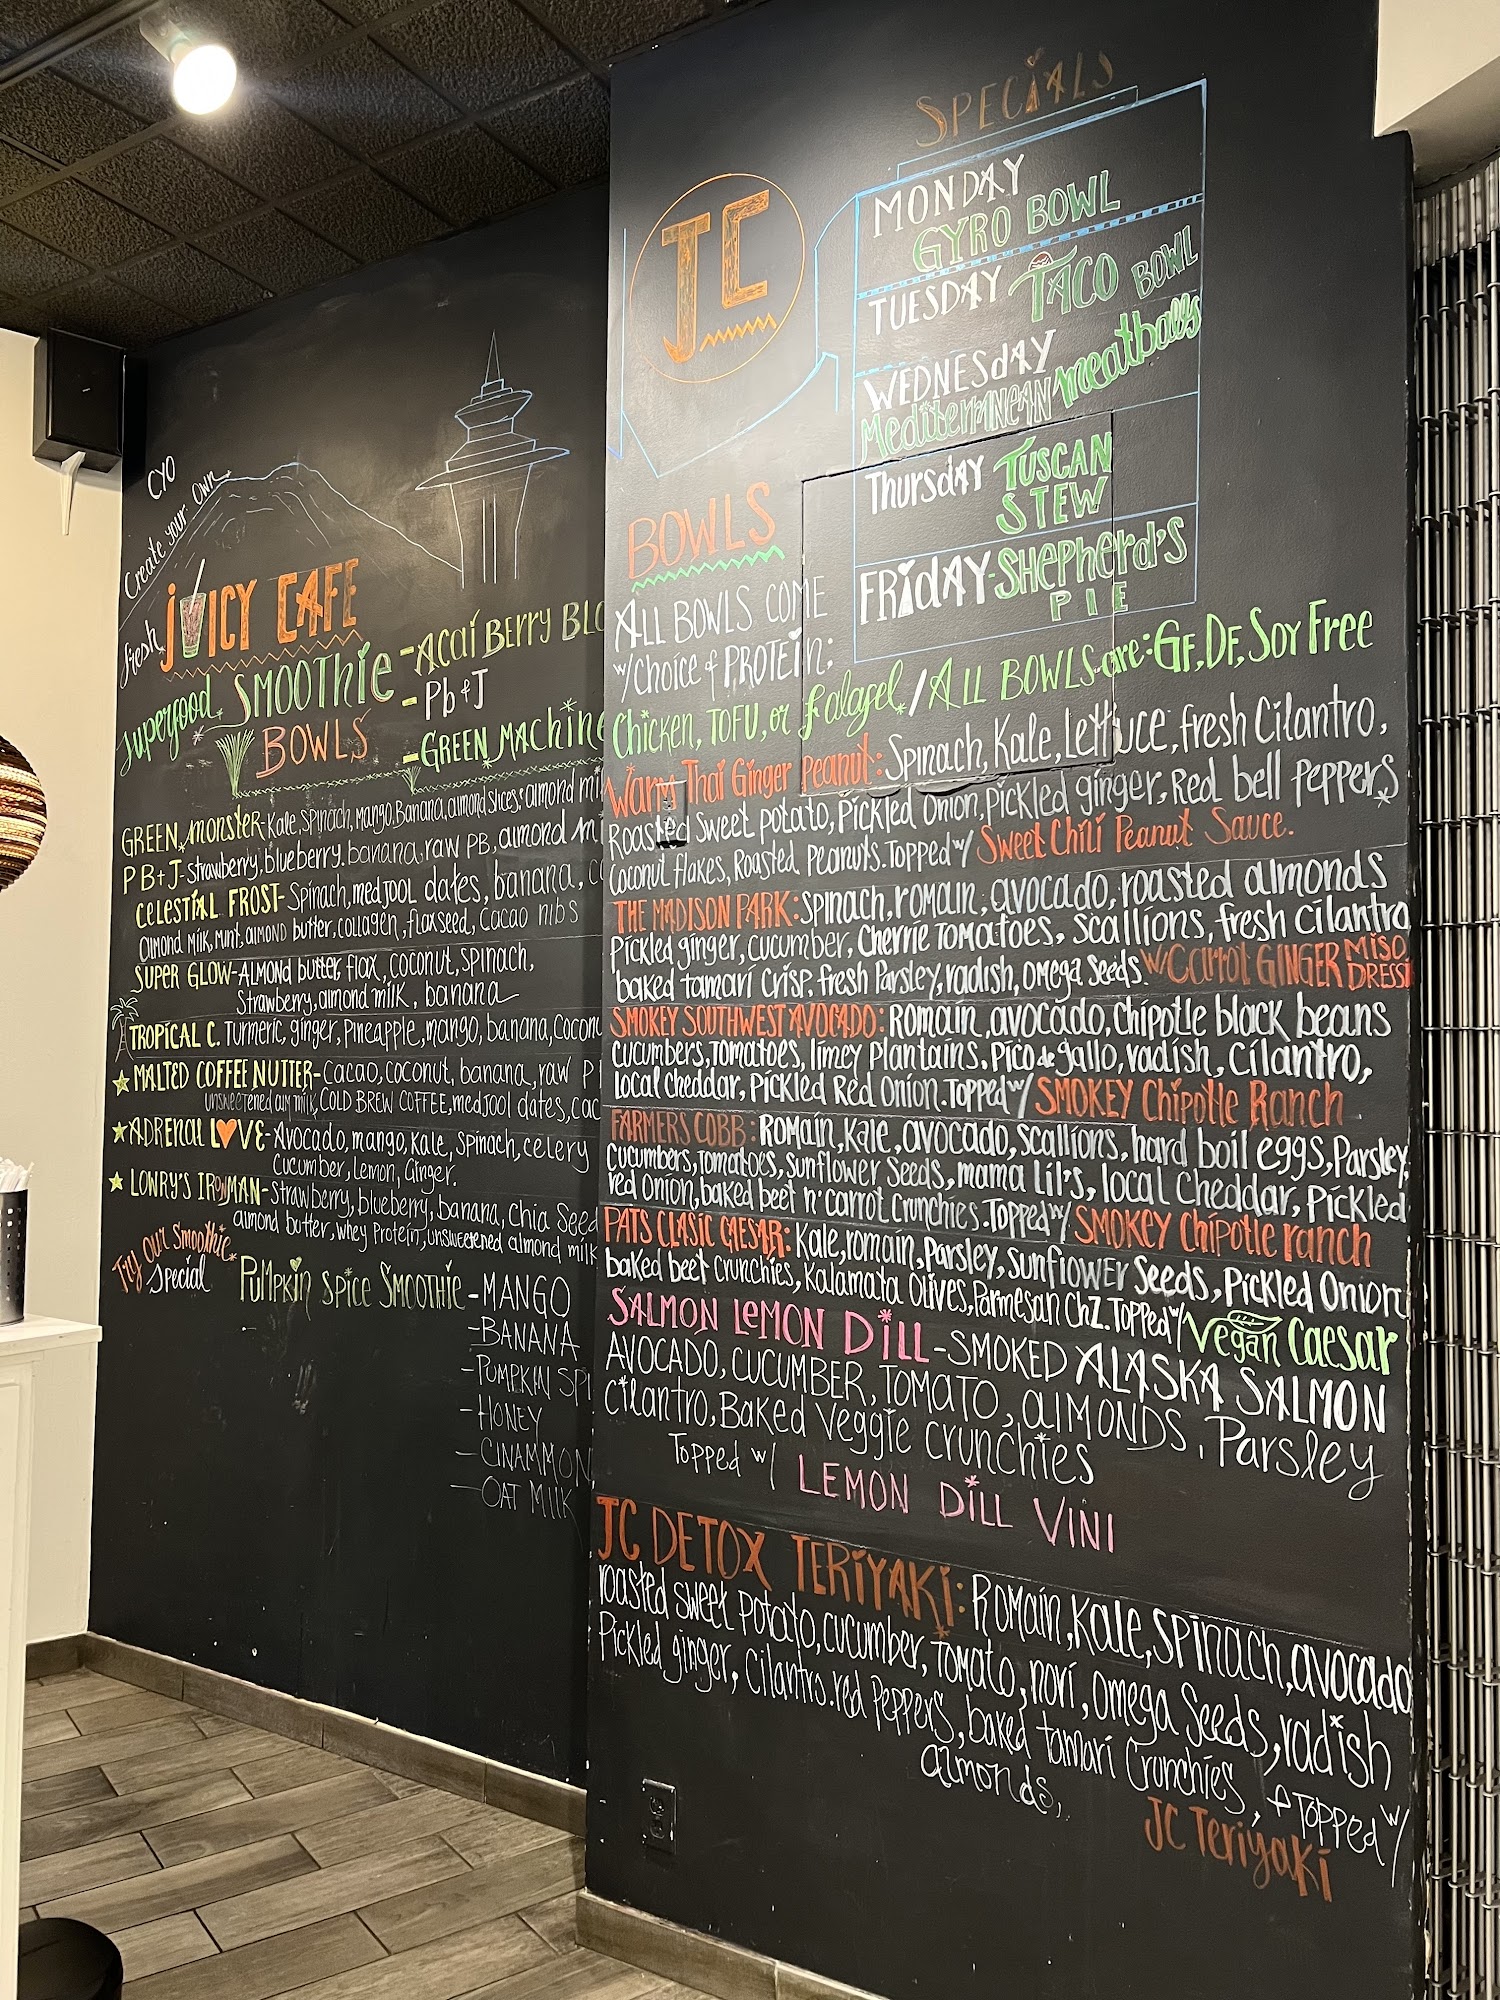 CYO
Create your own
fresh JUICY CAFE
superfood SMOOTHIE
BOWLS
-Acai BERRY BLO
- Pb+J
-GREEN MACHINE
GREEN monster-Kale, Spinach, mango, Banana, almond slices, almond mi
PB+J-strawberry, blueberry, banana, raw PB, almond mi
CELESTIAL FROST-Spinach, medjool dates, banana, co
almond milk, mint, almond butter, collagen, flaxseed, cacao nibs
SUPER GLOW-ALMOND butter, flax, coconut, spinach,
strawberry, almond milk, banana
TROPICAL C. Turmeric, ginger, Pineapple, mango, banana, Coconu
MALTED COFFEE NUTTER-Cacao, coconut, banana, raw P
unsweetened alm milk, COLD BREW COFFEE, medjool dates, cac
ADRENAL LOVE-Avocado, mango, Kale, Spinach, celery
Cucumber, Lemon, Ginger.
LOWRY'S IRONMAN-Strawberry, blueberry, banana, Chia Seed
almond butter, whey Protein, unsweetened almond milk
Try Our Smoothie
Special
PUMPKIN SPICE SMOOTHIE-MANGO
-BANANA
-PUMPKIN SPI
-HONEY
-CINAMMON
-OAT MILK
SPECIALS
JC
MONDAY
GYRO BOWL
TUESDAY TACO BOWL
WEDNESDAY
Mediterranean meatballs
Thursday TUSCAN
STEW
FRIDAY-SHEPHERD'S
PIE
BOWLS
ALL BOWLS COME
w/Choice of PROTEIN:
Chicken, TOFU, or Falafel./ALL BOWLS are: GF, DF, Soy Free
Warm Thai Ginger Peanut: Spinach, Kale, Lettuce, fresh Cilantro,
Roasted Sweet potato, Pickled Onion, Pickled ginger, Red bell Peppers
Coconut flakes, Roasted Peanuts. Topped w/ Sweet Chili Peanut Sauce.
THE MADISON PARK: Spinach, romain, avocado, roasted almonds
Pickled ginger, cucumber, Cherrie TOMATOES, Scallions, fresh Cilantro
baked tamari Crisp, fresh Parsley, radish, omega Seeds. w/Carrot GINGER MISO DRESSI
SMOKEY SOUTHWEST AVOCADO: Romain, avocado, Chipotle black beans
cucumbers, Tomatoes, limey Plantains, Pico de gallo, radish, Cilantro,
local Cheddar, Pickled Red Onion. Topped w/ SMOKEY Chipotle Ranch
FARMERS COBB: Romain, Kale, avocado, scallions, hard boil eggs, Parsley,
cucumbers, Tomatoes, Sunflower Seeds, mama lil's, local Cheddar, Pickled
red onion, baked beet n' carrot crunchies. Topped w/ SMOKEY Chipotle ranch
PATS CLASIC CAESAR: Kale, romain, Parsley, Sunflower Seeds, Pickled Onion
baked beet crunchies, Kalamata Olives, Parmesan Chz. Topped w/ Vegan Caesar
SALMON LEMON DILL-SMOKED ALASKA SALMON
AVOCADO, CUCUMBER, TOMATO, ALMONDS, Parsley
Cilantro, Baked Veggie crunchies
Topped w/ LEMON DILL VINI
JC DETOX TERIYAKI: Romain, Kale, Spinach, avocado
roasted sweet potato, cucumber, Tomato, nori, omega Seeds, radish
Pickled ginger, Cilantro. red Peppers, baked tamari Crunchies, + TOPPED w/
almonds,
JC Teriyaki